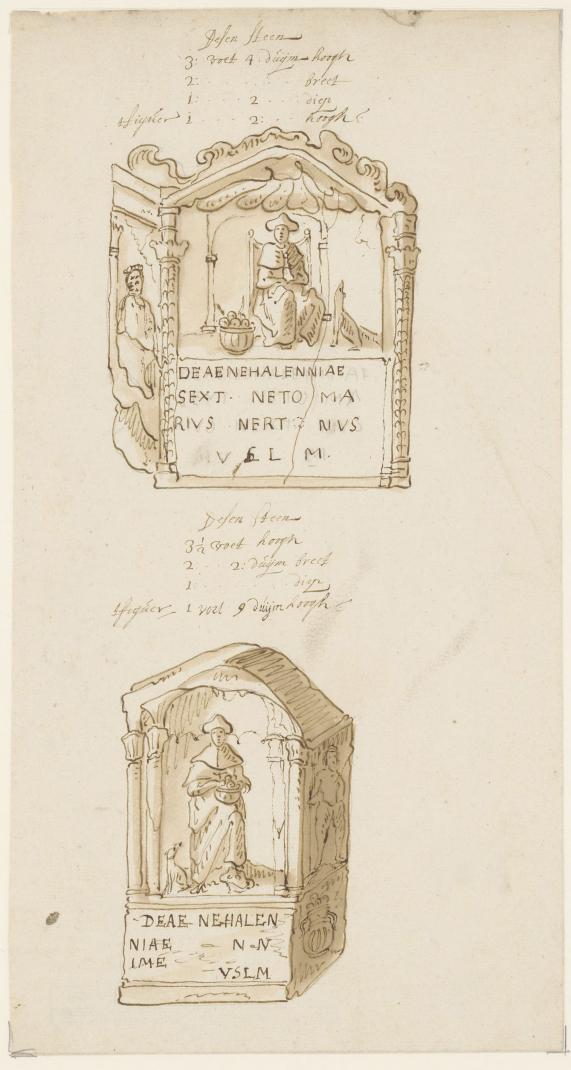 Desen Steen
3: voet 4 duÿm hoogh
2: breet
1: 2 diep
tfiguer 1 2: hoogh
DEAENEHALENNIAE
SEXT· NETO MA
RIVS NERT NVS
V S L M·
Desen steen
3½ voet hoogh
2: 2: duÿm breet
1: diep
tfiguer 1 voet 9 duÿm hoogh
DEAE NEHALEN
NIAE N N
IME
VSLM